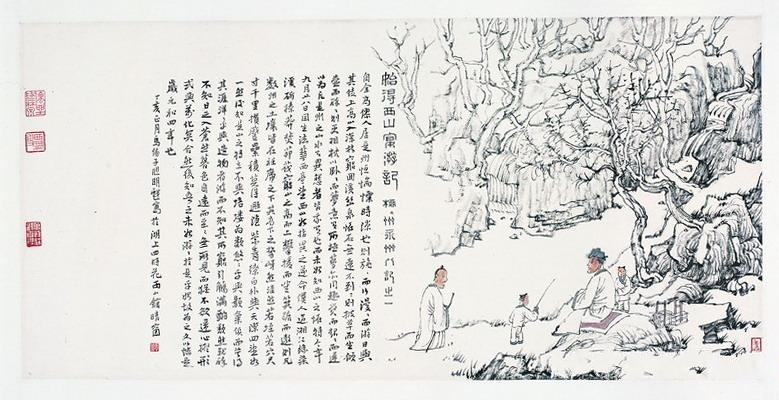 始得西山宴游記 柳州永州八記之一
自余為僇人居是州恒惴慄其隙也則施〻而行漫〻而遊日與
其徒上高山入深林窮回溪幽泉怪石無遠不到〻則披草而坐傾
壺而醉醉則更相枕以卧而夢意有所極夢亦同趣覺而起〻而歸
以為凡是州之山水有異態者皆我有也而未始知西山之怪特今年
九月廿八日因坐法華西亭望西山始指異之遂命僕人過湘江緣染
溪斫榛莽焚茅茷窮山之高而上攀援而登箕踞而遨則凡
數州之土壤皆在衽席之下其高下之勢岈然洼然若垤若穴尺
寸千里攢蹙累積莫得遯隱縈青繚白外與天際四望如
一然後知是山之特立不與培塿為類悠〻乎與顥氣俱而莫得
其涯洋〻乎與造物者游而不知其所窮引觴滿酌頹然就醉
不知日之入蒼然暮色自遠而至〻無所見而猶不欲還心凝形
釋與萬化冥合然後知吾向之未始游〻於是乎始故為之文以志是
歲元和四年也
丁亥正月 寫於湖上四時花雨山館晴窗